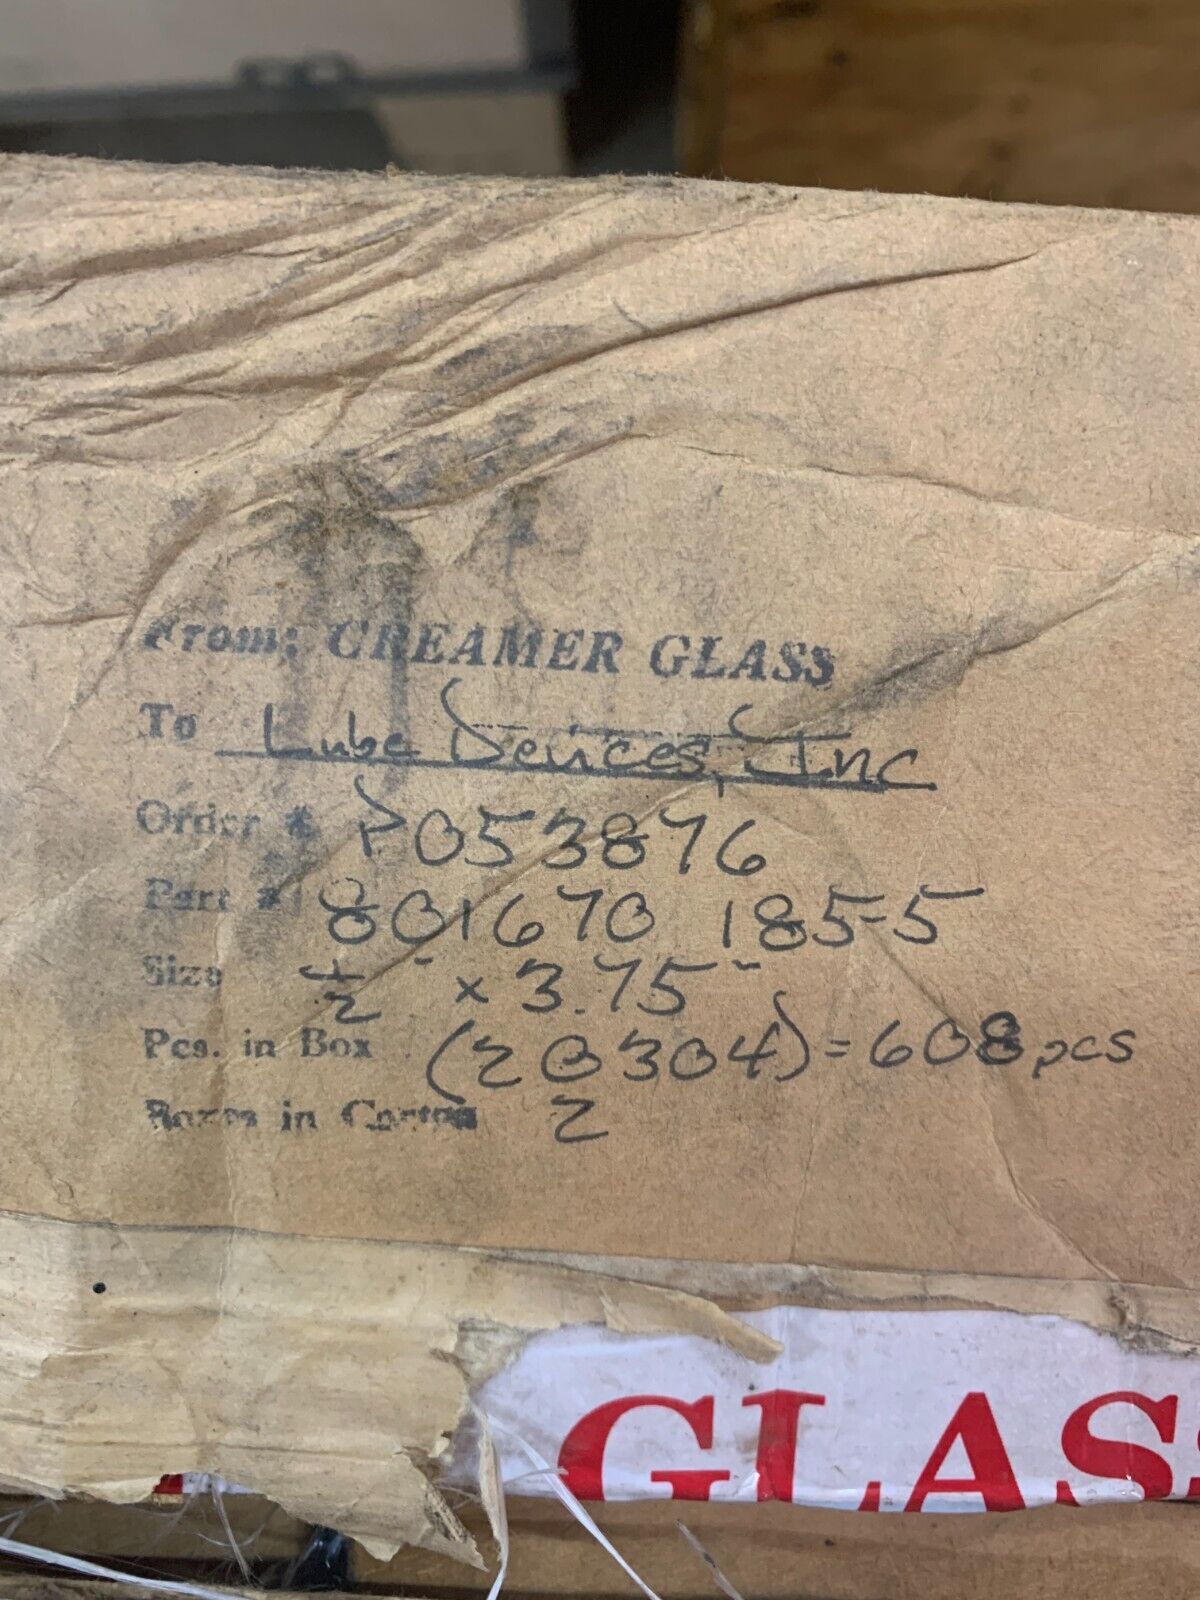 From: CREAMER GLASS
To Lube Devices, Inc
Order # P053876
Part # 801670 185-5
Size 1/2" x 3.75"
Pcs. in Box (20304) = 608 pcs
Boxes in Carton 2
GLAS